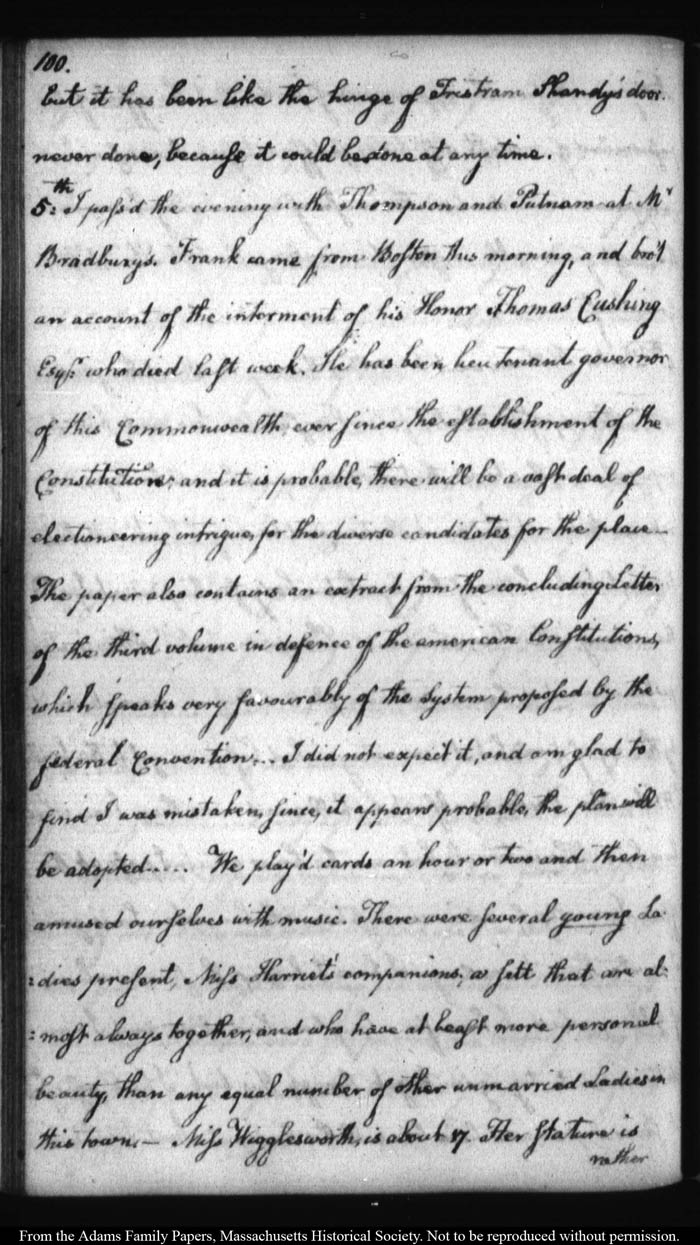 100.
but it has been like the hinge of Tristram Shandy's door.
never done, because it could be done at any time.
5:th I pass'd the evening with Thompson and Putnam at Mr
Bradbury's. Frank came from Boston this morning, and bro't
an account of the interment of his Honor Thomas Cushing
Esqr. who died last week. He has been lieutenant governor
of this Commonwealth, ever since the establishment of the
Constitution; and it is probable, there will be a vast deal of
electioneering intrigue, for the diverse candidates for the place—
The paper also contains an extract from the concluding Letter
of the third volume in defence of the american Constitutions,
which speaks very favourably of the System proposed by the
federal Convention... I did not expect it, and am glad to
find I was mistaken, since, it appears probable, the plan will
be adopted..... We play'd cards an hour or two and then
amused ourselves with music. There were several young La-
:dies present, Miss Harriet's companions; a sett that are al-
:most always together, and who have at least more personal
beauty, than any equal number of other unmarried Ladies in
this town.— Miss Wigglesworth, is about 17. Her stature is
rather
From the Adams Family Papers, Massachusetts Historical Society. Not to be reproduced without permission.